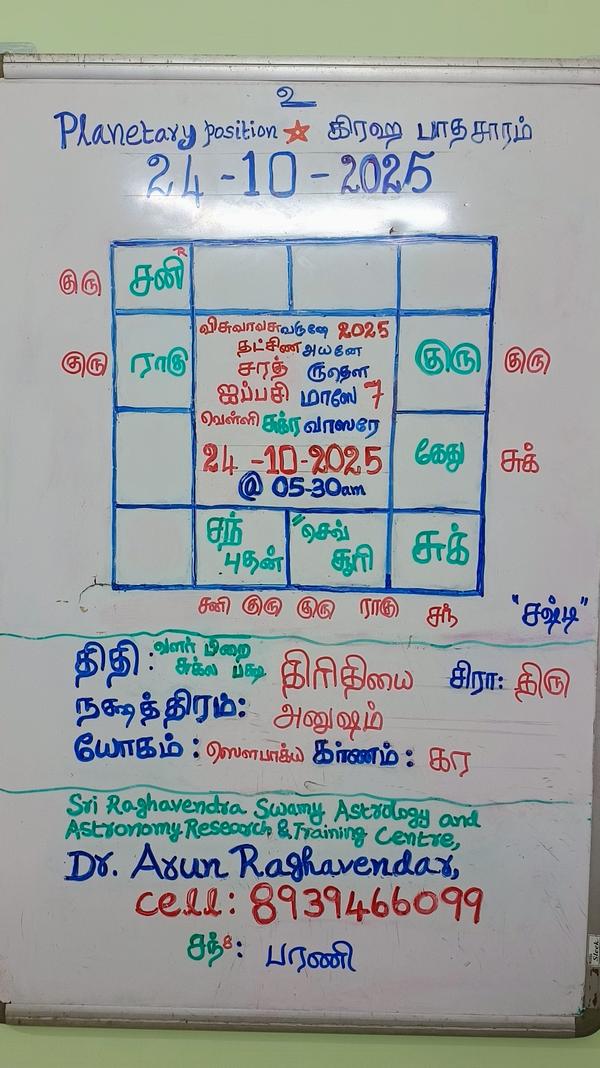 உ
Planetary position ☆ கிரஹ பாதசாரம்
24-10-2025
குரு சனி R
விசுவாவசுவருஷே 2025
தட்சிண அயனே
குரு ராகு சரத் ருதௌ குரு குரு
ஐப்பசி மாஸே 7
வெள்ளி சுக்ர வாஸரே
24-10-2025 கேது சுக்
@ 05-30am
சந் "செவ் சுக்
புதன் சூரி
சனி குரு குரு ராகு சந் "சஷ்டி"
திதி: வளர் பிறை சுக்ல பக்ஷ திரிதியை சிரா: திரு
நக்ஷத்திரம்: அனுஷம்
யோகம்: ஸௌபாக்ய கர்ணம்: கர
Sri Raghavendra Swamy Astrology and
Astronomy Research & Training Centre,
Dr. Arun Raghavendar,
cell: 8939466099
சந் 8: பரணி